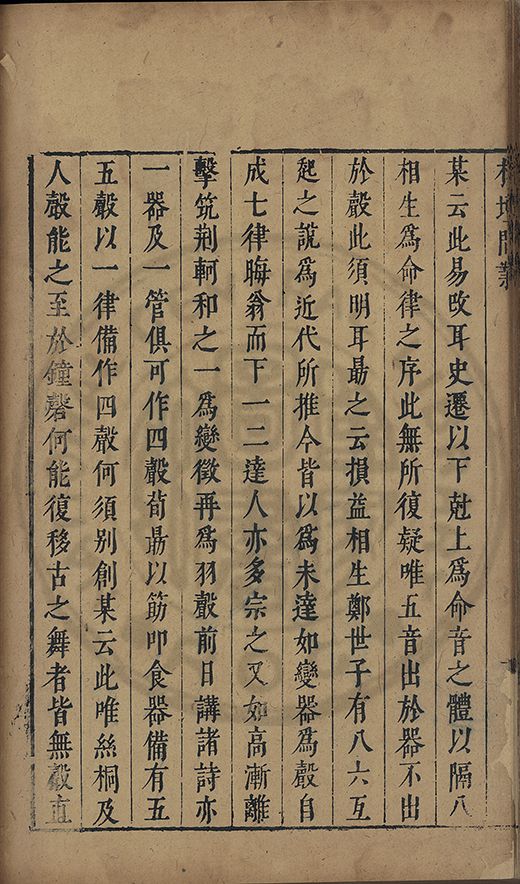 榕壇問業
某云此易攷耳史遷以下尅上為命音之體以隔八
相生為命律之序此無所復疑唯五音出於器不出
於聲此須明耳最之云損益相生鄭世子有八六互
起之說為近代所推今皆以為未達如變器為聲自
成七律晦翁而下一二達人亦多宗之又如高漸離
擊筑荆軻和之一為變徵再為羽聲前日講諸詩亦
一器及一管俱可作四聲荀勗以筯叩食器備有五
五聲以一律備作四聲何須别創某云此唯絲桐及
人聲能之至於鐘磬何能復移古之舞者皆無聲直